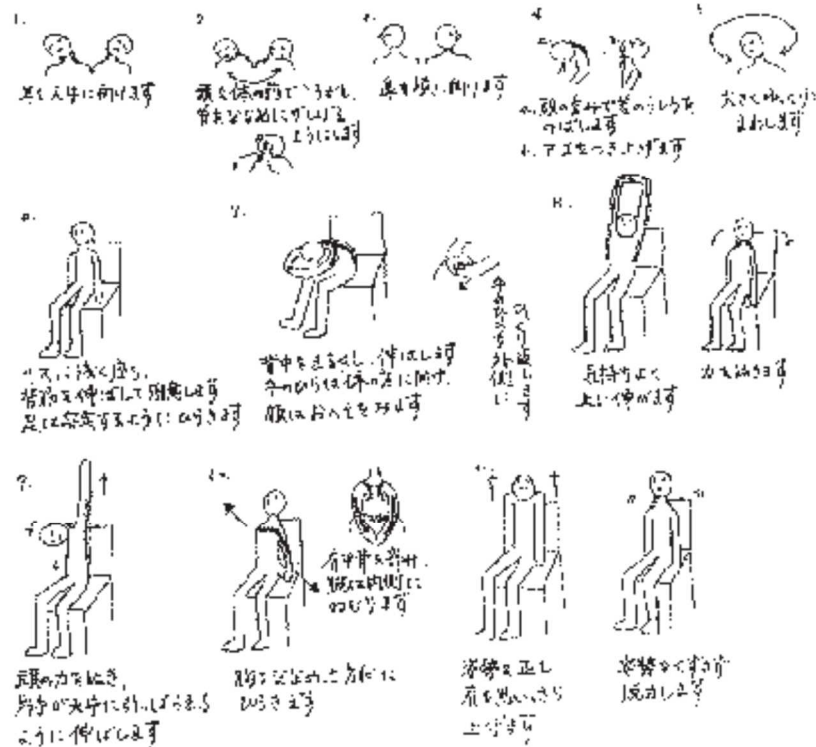 1.
耳を天井に向けます
2.
頭を体の前でころがし、
首をななめにのばせる
ようにします
3.
鼻を横に向けます
4.
a. 頭の重みで首のうしろを
のばします
b. アゴをつき上げます
5.
大きくゆっくりと
まわします
6.
イスに浅く座り、
背筋を伸ばして
足は安定するようにひらきます
7.
背中をまるくし、伸ばします
手のひらは体の方に向け、
顔はおへそをみます
手のひらを外側に
ひっくり返します
8.
気持ちよく
上に伸びます
力を抜きます
9.
頭の力を抜き、
両手が天井に引っぱられる
ように伸ばします
10.
肩甲骨を寄せ、
腕は内側に
ねじります
胸をななめ上方向に
ひらきます
11.
姿勢を正し
肩を思いっきり
上げます
姿勢をくずさず
脱力します